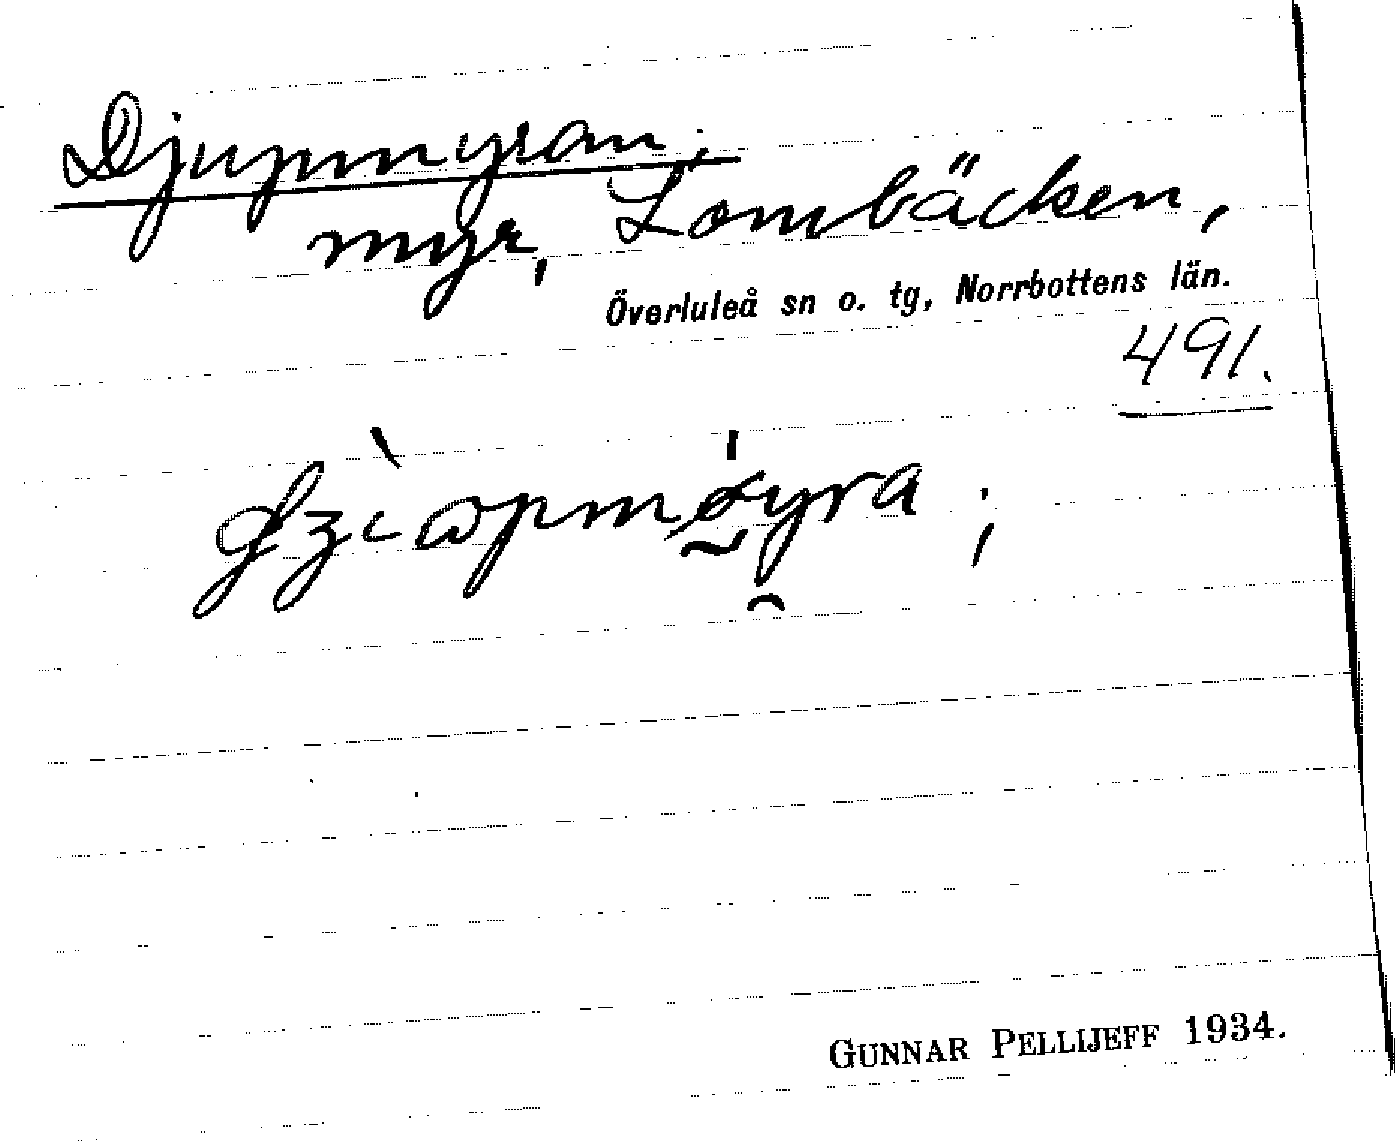 Djupmyran;
myr, Lombäcken,
Överluleå sn o. tg, Norrbottens län.
491.
GUNNAR PELLIJEFF 1934.